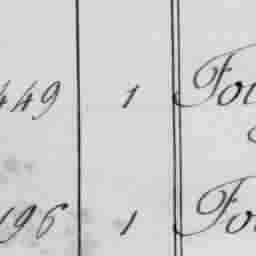 449 1 Fou
196 1 Fo